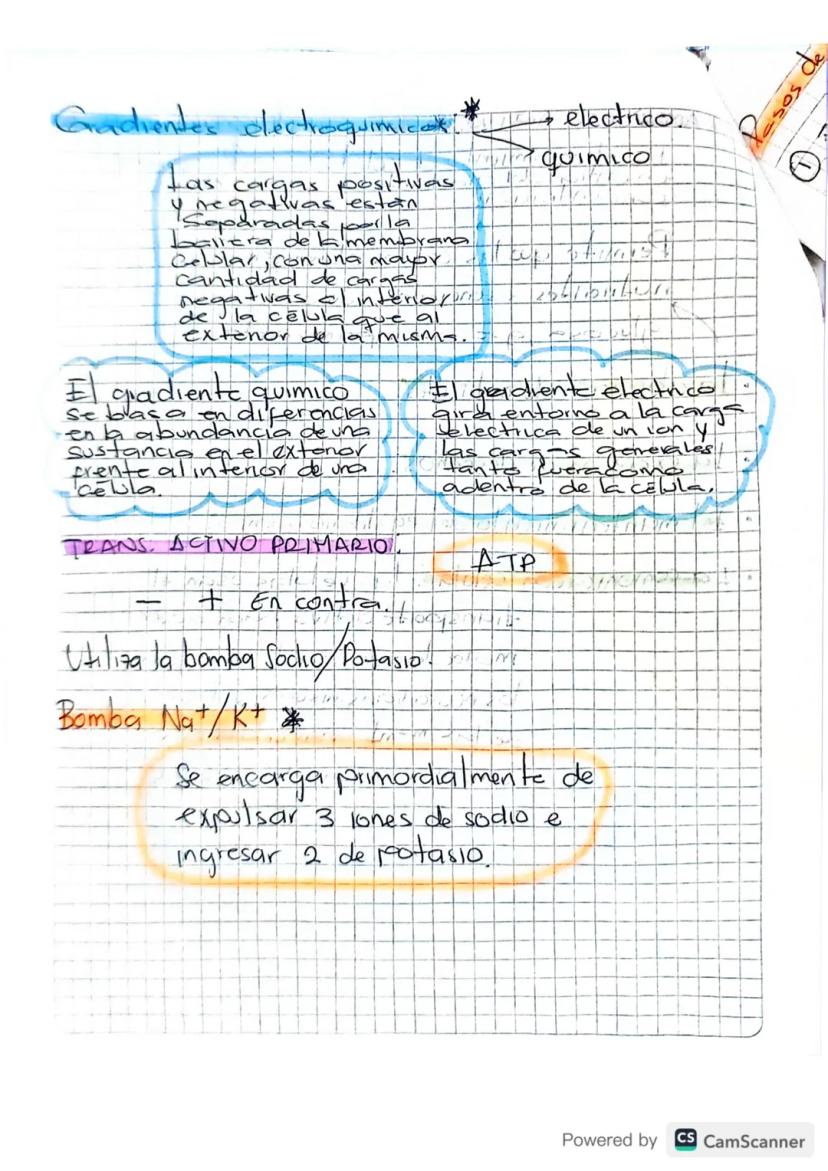 Gradientes electroquimicos. *
→ electrico.
→ quimico
Las cargas positivas
y negativas están
separadas por la
barrera de la membrana
Celular, con una mayor
cantidad de cargas
negativas el interior
de la célula que al
exterior de la misma.
El gradiente quimico
se basa en diferencias
en la abundancia de una
sustancia en el exterior
frente al interior de una
célula.
El gradiente electrico
gira entorno a la carga
electrica de un ion y
las cargas generales
tanto fuera como
adentro de la célula.
TRANS. ACTIVO PRIMARIO.
ATP
- + En contra.
Utiliza la bomba Sodio/Potasio.
Bomba Na+/K+ *
Se encarga primordialmente de
expulsar 3 iones de sodio e
ingresar 2 de potasio.
Pasos de
1
Powered by CS CamScanner